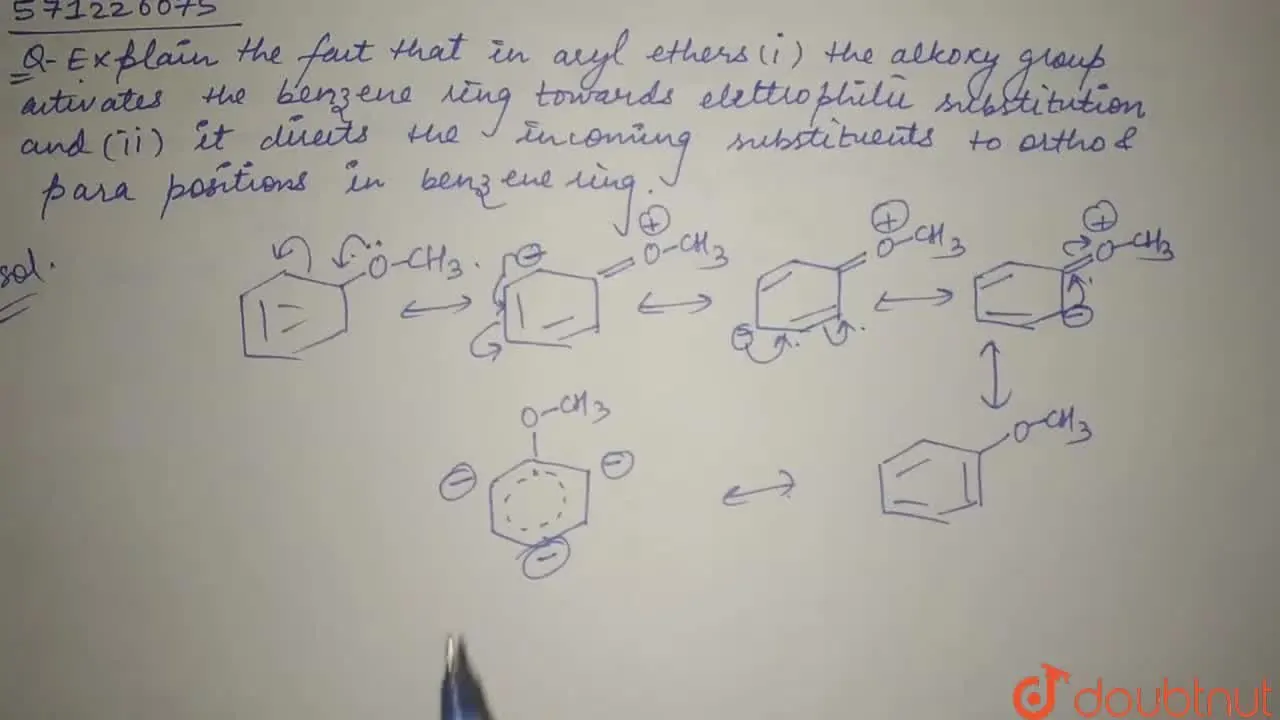 571226075
Q- Explain the fact that in aryl ethers (i) the alkoxy group
activates the benzene ring towards elettrophilic substitution
and (ii) it directs the incoming substituents to ortho &
para positions in benzene ring.
sol.
O-CH3.
+
O-CH3
+
O-CH3
+
O-CH3
O-CH3
O-CH3
doubtnut